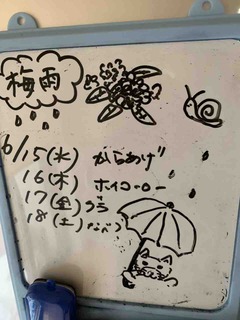 梅雨
6/15(水) からあげ
16(木) ホイコーロー
17(金)
18(土)